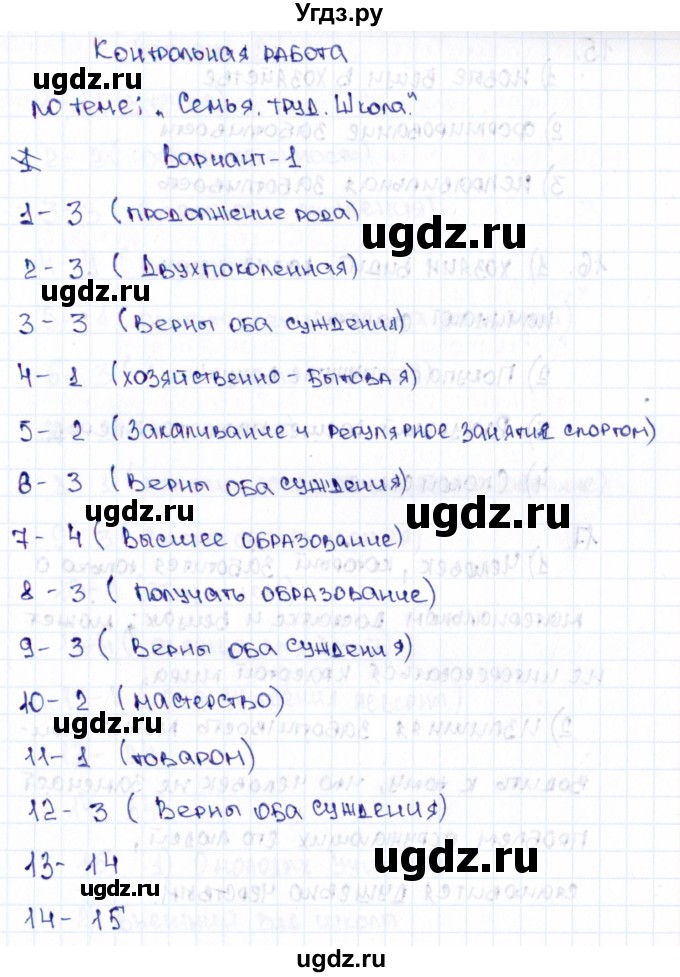 Угдз.ру
Контрольная работа
по теме: „Семья. труд. Школа."
1 Вариант-1
1- 3 (продолжение рода)
2- 3 (Двухпоколенная)
3- 3 (Верны оба суждения)
4- 1 (хозяйственно-бытовая)
5- 2 (Закаливание и регулярное занятия спортом)
8- 3 (Верны оба суждения)
7- 4 (Высшее образование)
8- 3 (получать образование)
9- 3 (Верны оба суждения)
10- 2 (мастерство)
11- 1 (товаром)
12- 3 (Верны оба суждения)
13- 14
14- 15
ugdz.ru
ugdz.ru
ugdz.ru
ugdz.ru
ugdz.ru
ugdz.ru
ugdz.ru
ugdz.ru
ugdz.ru
ugdz.ru
ugdz.ru